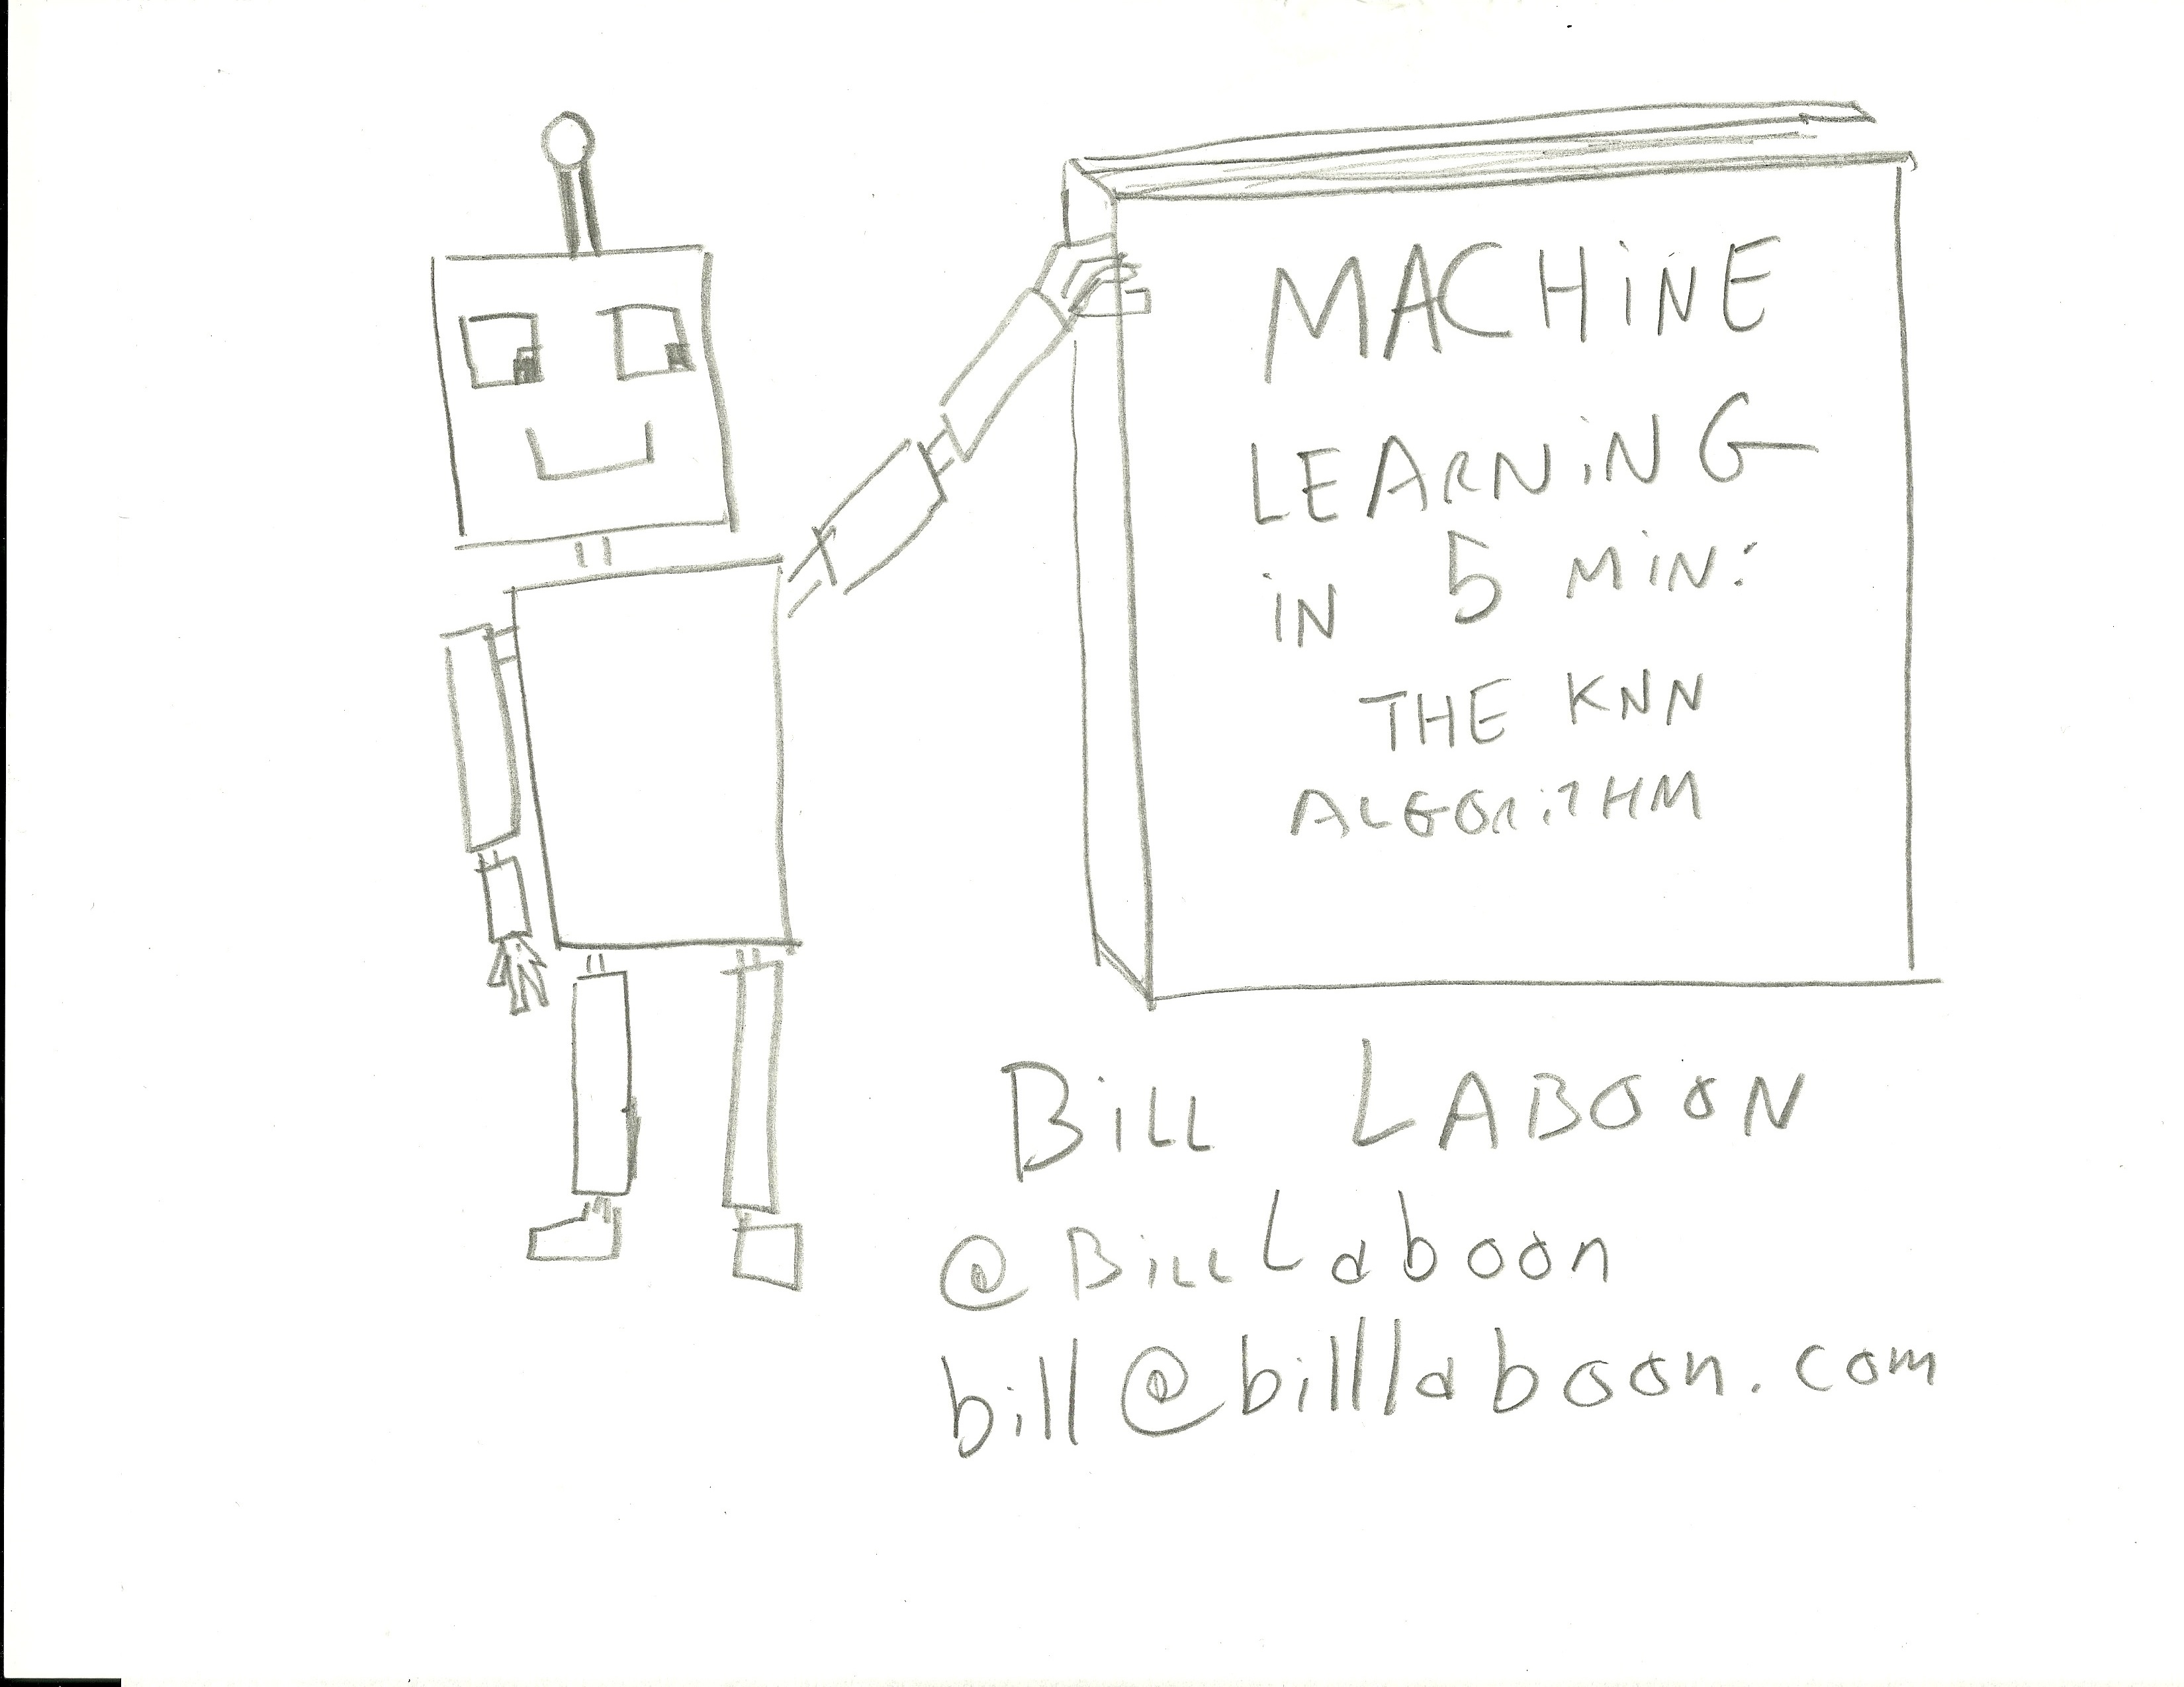 MACHiNE
LEARNiNG
iN 5 MiN:
THE KNN
ALGORiTHM
BiLL LABOON
@BiLLLaboon
bill@billlaboon.com